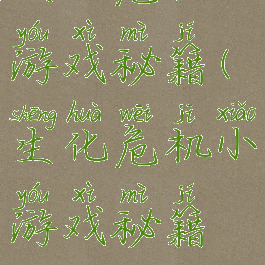 yóu xì mì jí
游戏秘籍(
shēng huà wēi jī xiǎo
生化危机小
yóu xì mì jí
游戏秘籍